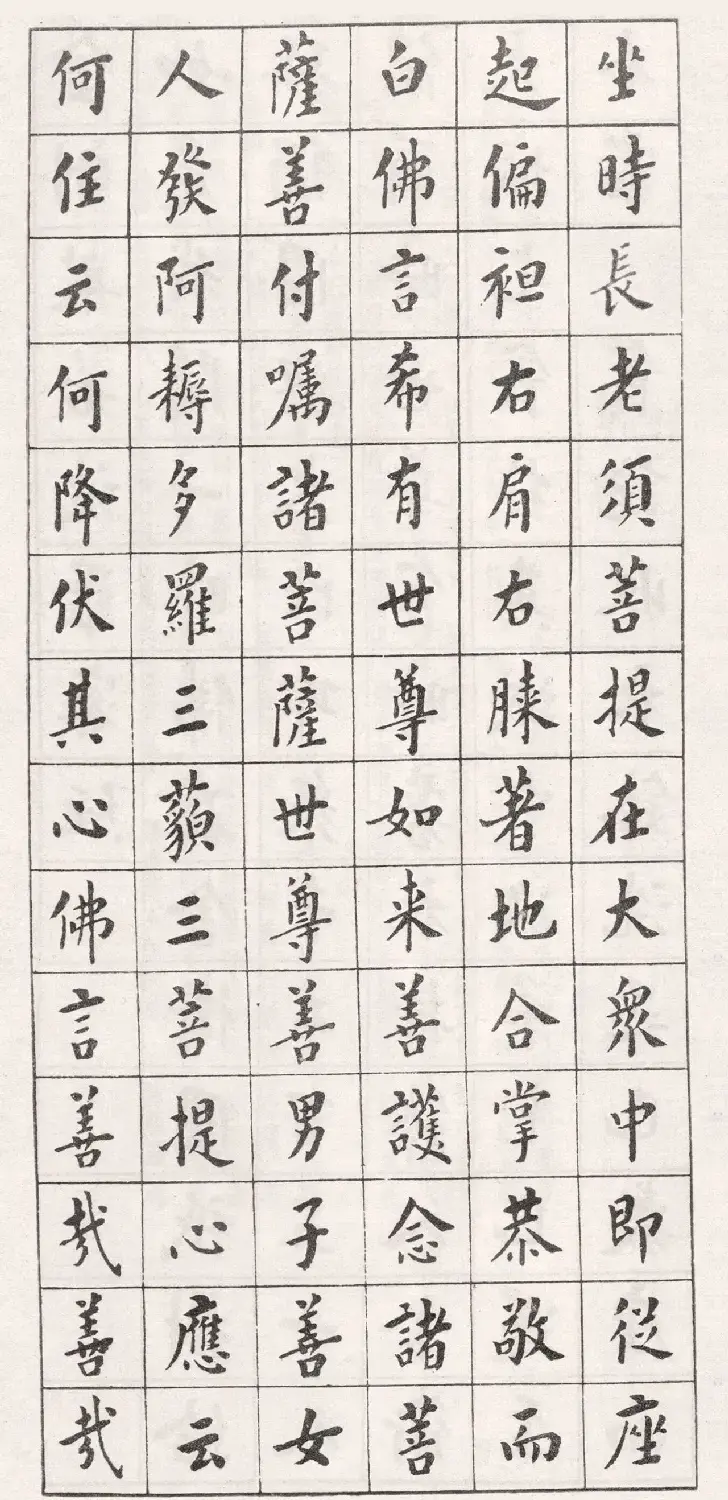 坐時長老須菩提在大衆中即從座
起偏袒右肩右膝著地合掌恭敬而
白佛言希有世尊如来善護念諸菩
薩善付嘱諸菩薩世尊善男子善女
人發阿耨多羅三藐三菩提心應云
何住云何降伏其心佛言善哉善哉